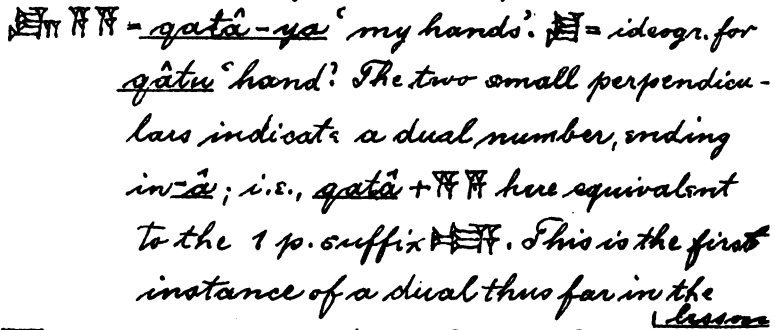 𒋗𒈫 𒀀𒀀 = qatâ-ya ‘my hands’. 𒋗 = ideogr. for
qâtu ‘hand’. The two small perpendicu-
lars indicate a dual number, ending
in -â; i.e., qatâ + 𒀀𒀀 here equivalent
to the 1 p. suffix. This is the first
instance of a dual thus far in the
lesson